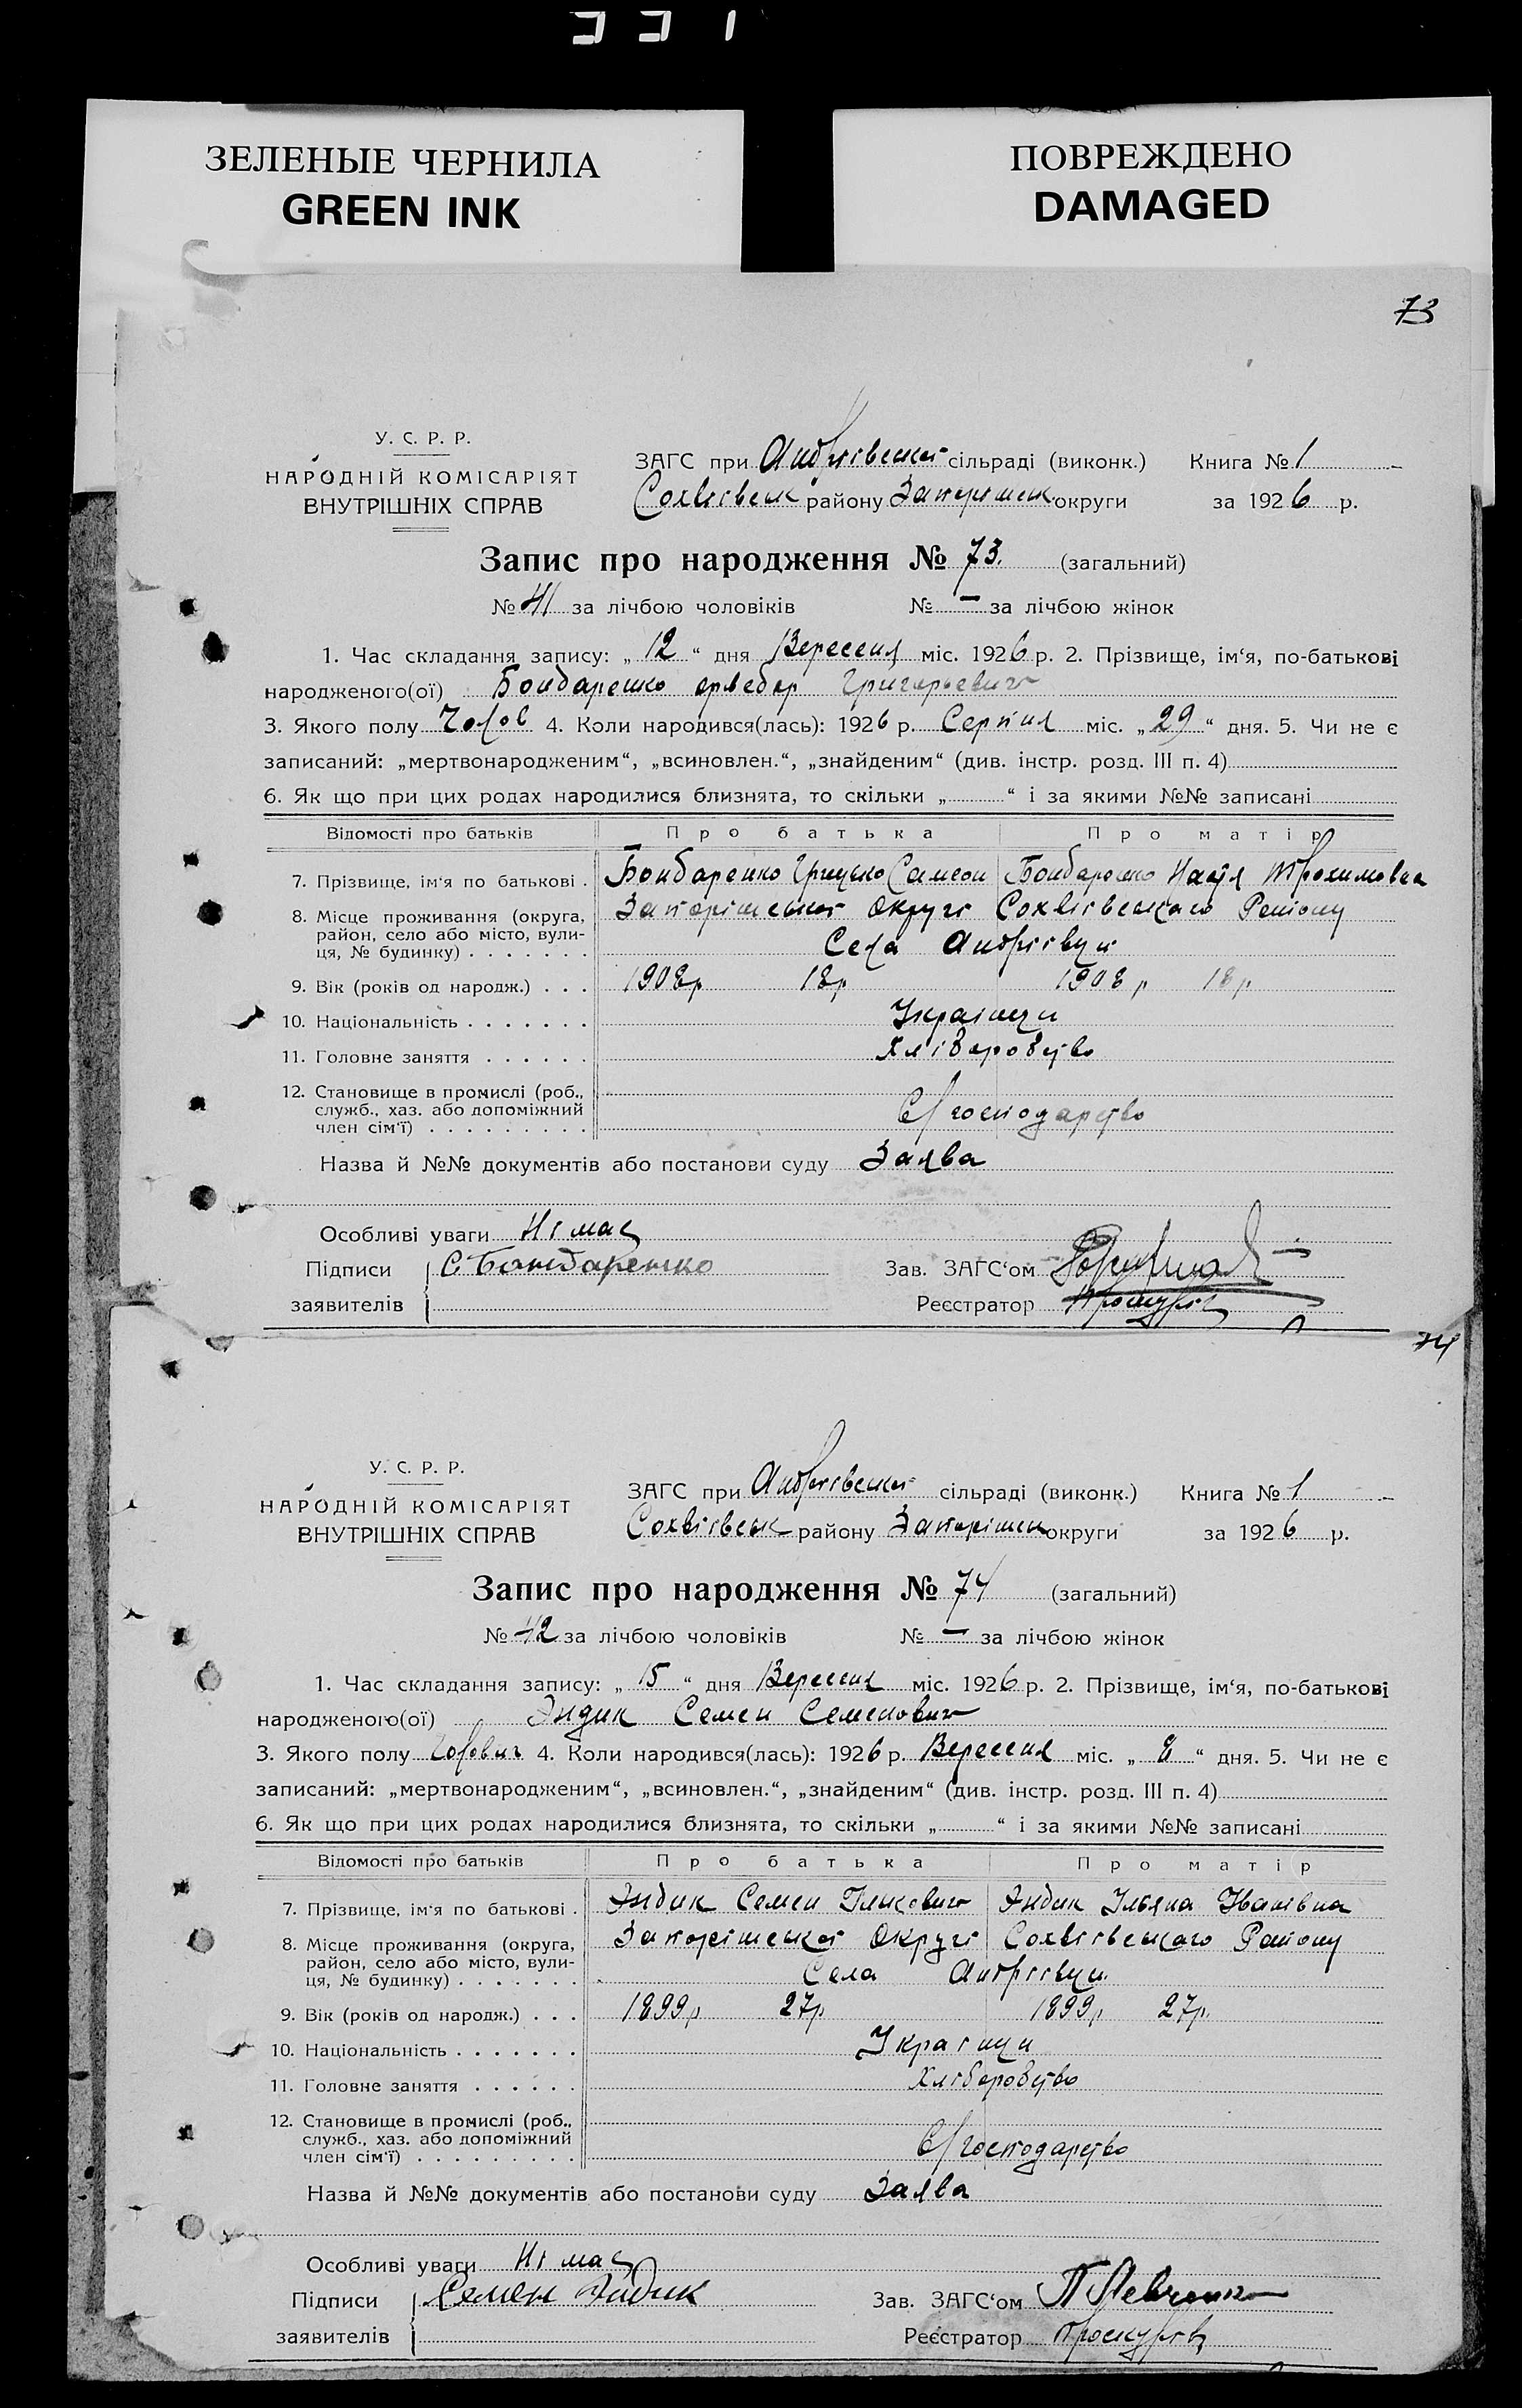 ЗЕЛЕНЫЕ ЧЕРНИЛА
GREEN INK
ПОВРЕЖДЕНО
DAMAGED
73
У. С. Р. Р.
НАРОДНІЙ КОМІСАРІЯТ
ВНУТРІШНІХ СПРАВ
ЗАГС при Андріївської сільраді (виконк.) Книга № 1
району Запоріжськ округи за 1926 р.
Запис про народження № 73. (загальний)
№ 41 за лічбою чоловіків № — за лічбою жінок
1. Час складання запису: „ 12 “ дня Вересеня міс. 1926 р. 2. Прізвище, ім‘я, по-батькові
народженого(ої) Бондаренко Григорьевич
3. Якого полу Чолов 4. Коли народився(лась): 1926 р. Серпня міс. „ 29 “ дня. 5. Чи не є
записаний: „мертвонародженим“, „всиновлен.“, „знайденим“ (див. інстр. розд. III п. 4)
6. Як що при цих родах народилися близнята, то скільки „ “ і за якими №№ записані
Відомості про батьків Про батька Про матір
7. Прізвище, ім‘я по батькові . Бондаренко Грицько Самсон Бондаренко Настя Трохимовна
8. Місце проживання (округа, Запоріжської Округи Району
район, село або місто, вули-
ця, № будинку) . . . . . . . Села Андріївци
9. Вік (років од народж.) . . . 1908р 18р 1908р 18р
10. Національність . . . . . . . Українци
11. Головне заняття . . . . . . Хліборобство
12. Становище в промислі (роб.,
служб., хаз. або допоміжний С/господарство
член сім‘ї) . . . . . . . . .
Назва й №№ документів або постанови суду Заява
Особливі уваги Ні має
Підписи С Бондаренко Зав. ЗАГС‘ом
заявителів Реєстратор
74
У. С. Р. Р.
НАРОДНІЙ КОМІСАРІЯТ
ВНУТРІШНІХ СПРАВ
ЗАГС при Андріївської сільраді (виконк.) Книга № 1
району Запоріжськ округи за 1926 р.
Запис про народження № 74 (загальний)
№ 42 за лічбою чоловіків № — за лічбою жінок
1. Час складання запису: „ 15 “ дня Вересня міс. 1926 р. 2. Прізвище, ім‘я, по-батькові
народженого(ої) Эндик Семен Семенович
3. Якого полу Чолович 4. Коли народився(лась): 1926 р. Вересеня міс. „ 8 “ дня. 5. Чи не є
записаний: „мертвонародженим“, „всиновлен.“, „знайденим“ (див. інстр. розд. III п. 4)
6. Як що при цих родах народилися близнята, то скільки „ “ і за якими №№ записані
Відомості про батьків Про батька Про матір
7. Прізвище, ім‘я по батькові . Эндик Семен Эндик Ульяна Іванівна
8. Місце проживання (округа, Запоріжської Округи Району
район, село або місто, вули-
ця, № будинку) . . . . . . . Села Андріівци
9. Вік (років од народж.) . . . 1899р 27р 1899р 27р.
10. Національність . . . . . . . Українци
11. Головне заняття . . . . . . Хліборобство
12. Становище в промислі (роб.,
служб., хаз. або допоміжний С/господарство
член сім‘ї) . . . . . . . . .
Назва й №№ документів або постанови суду Заява
Особливі уваги Ні має
Підписи Семен Эндик Зав. ЗАГС‘ом П Левченко
заявителів Реєстратор